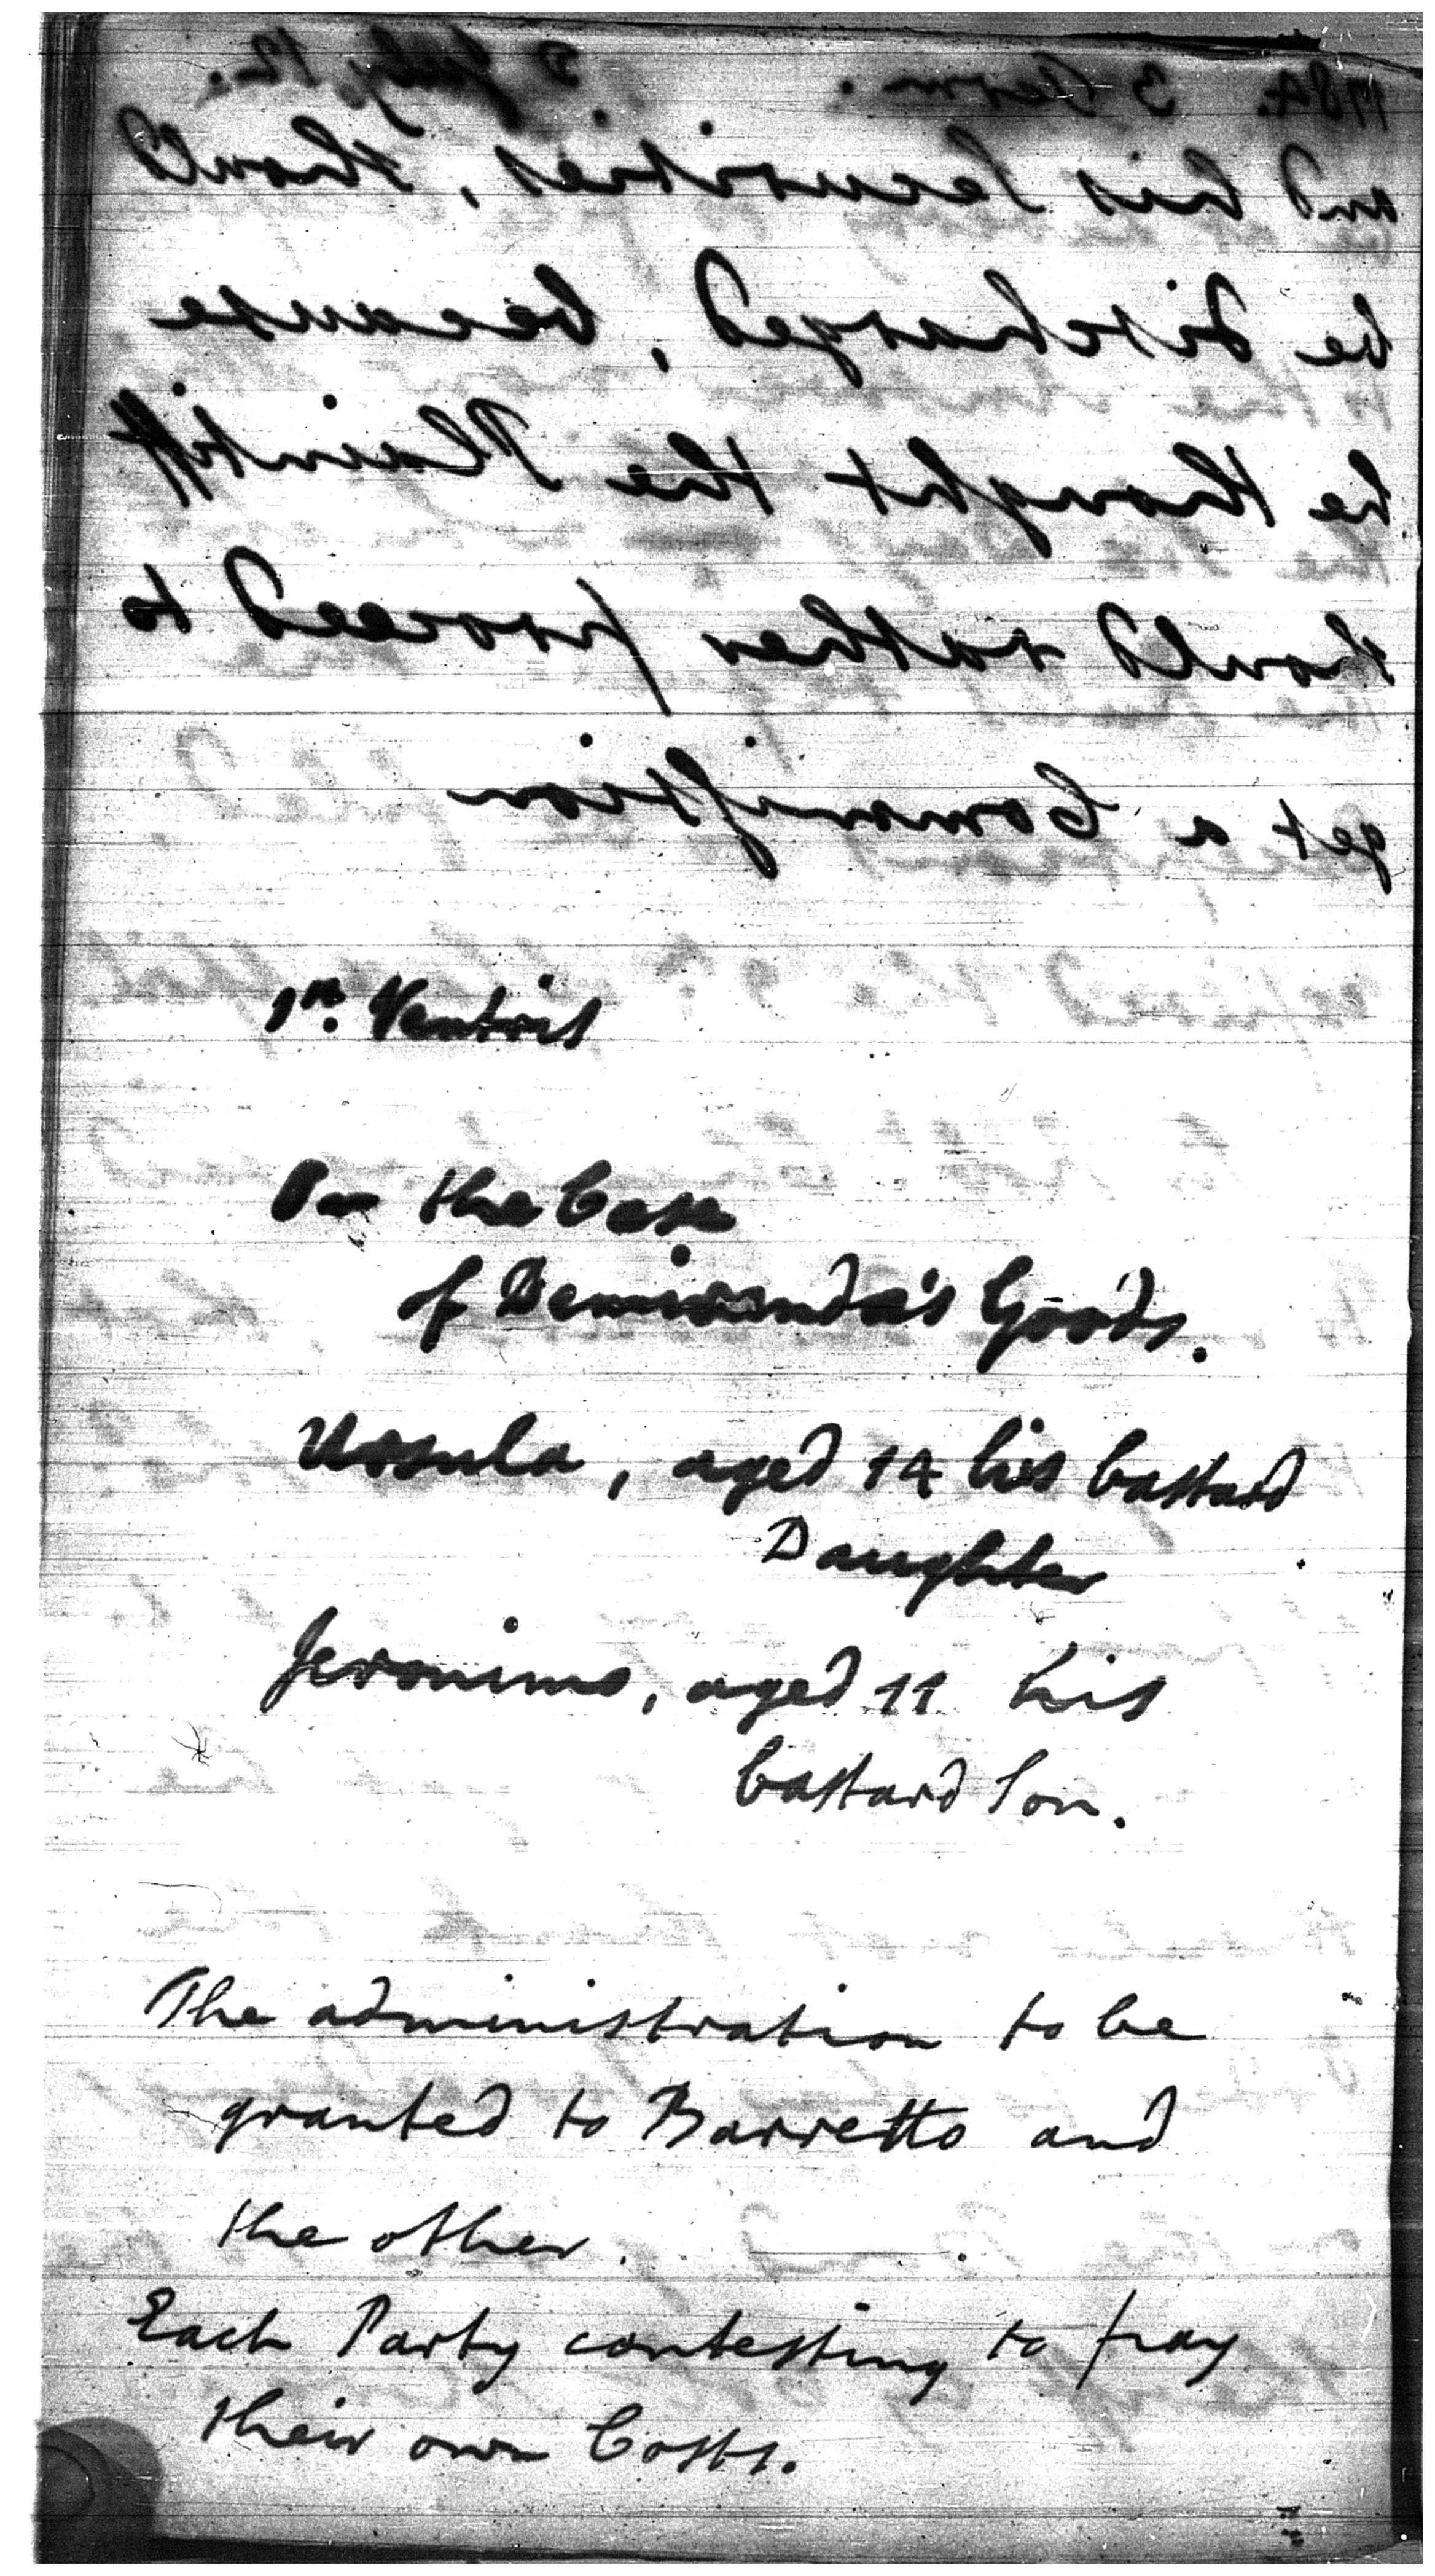 1784. 3 Term. 2 July 12.
and his Securities, should
be discharged, because
he thought the Plaintiff
should rather proceed to
get a Commission
1st. Ventris
On the Case
of Demiranda's Goods.
Ursula, aged 14 his bastard
Daughter
Jeronimo, aged 11 his
bastard Son.
The administration to be
granted to Barretto and
the other.
Each Party contesting to pay
their own Costs.